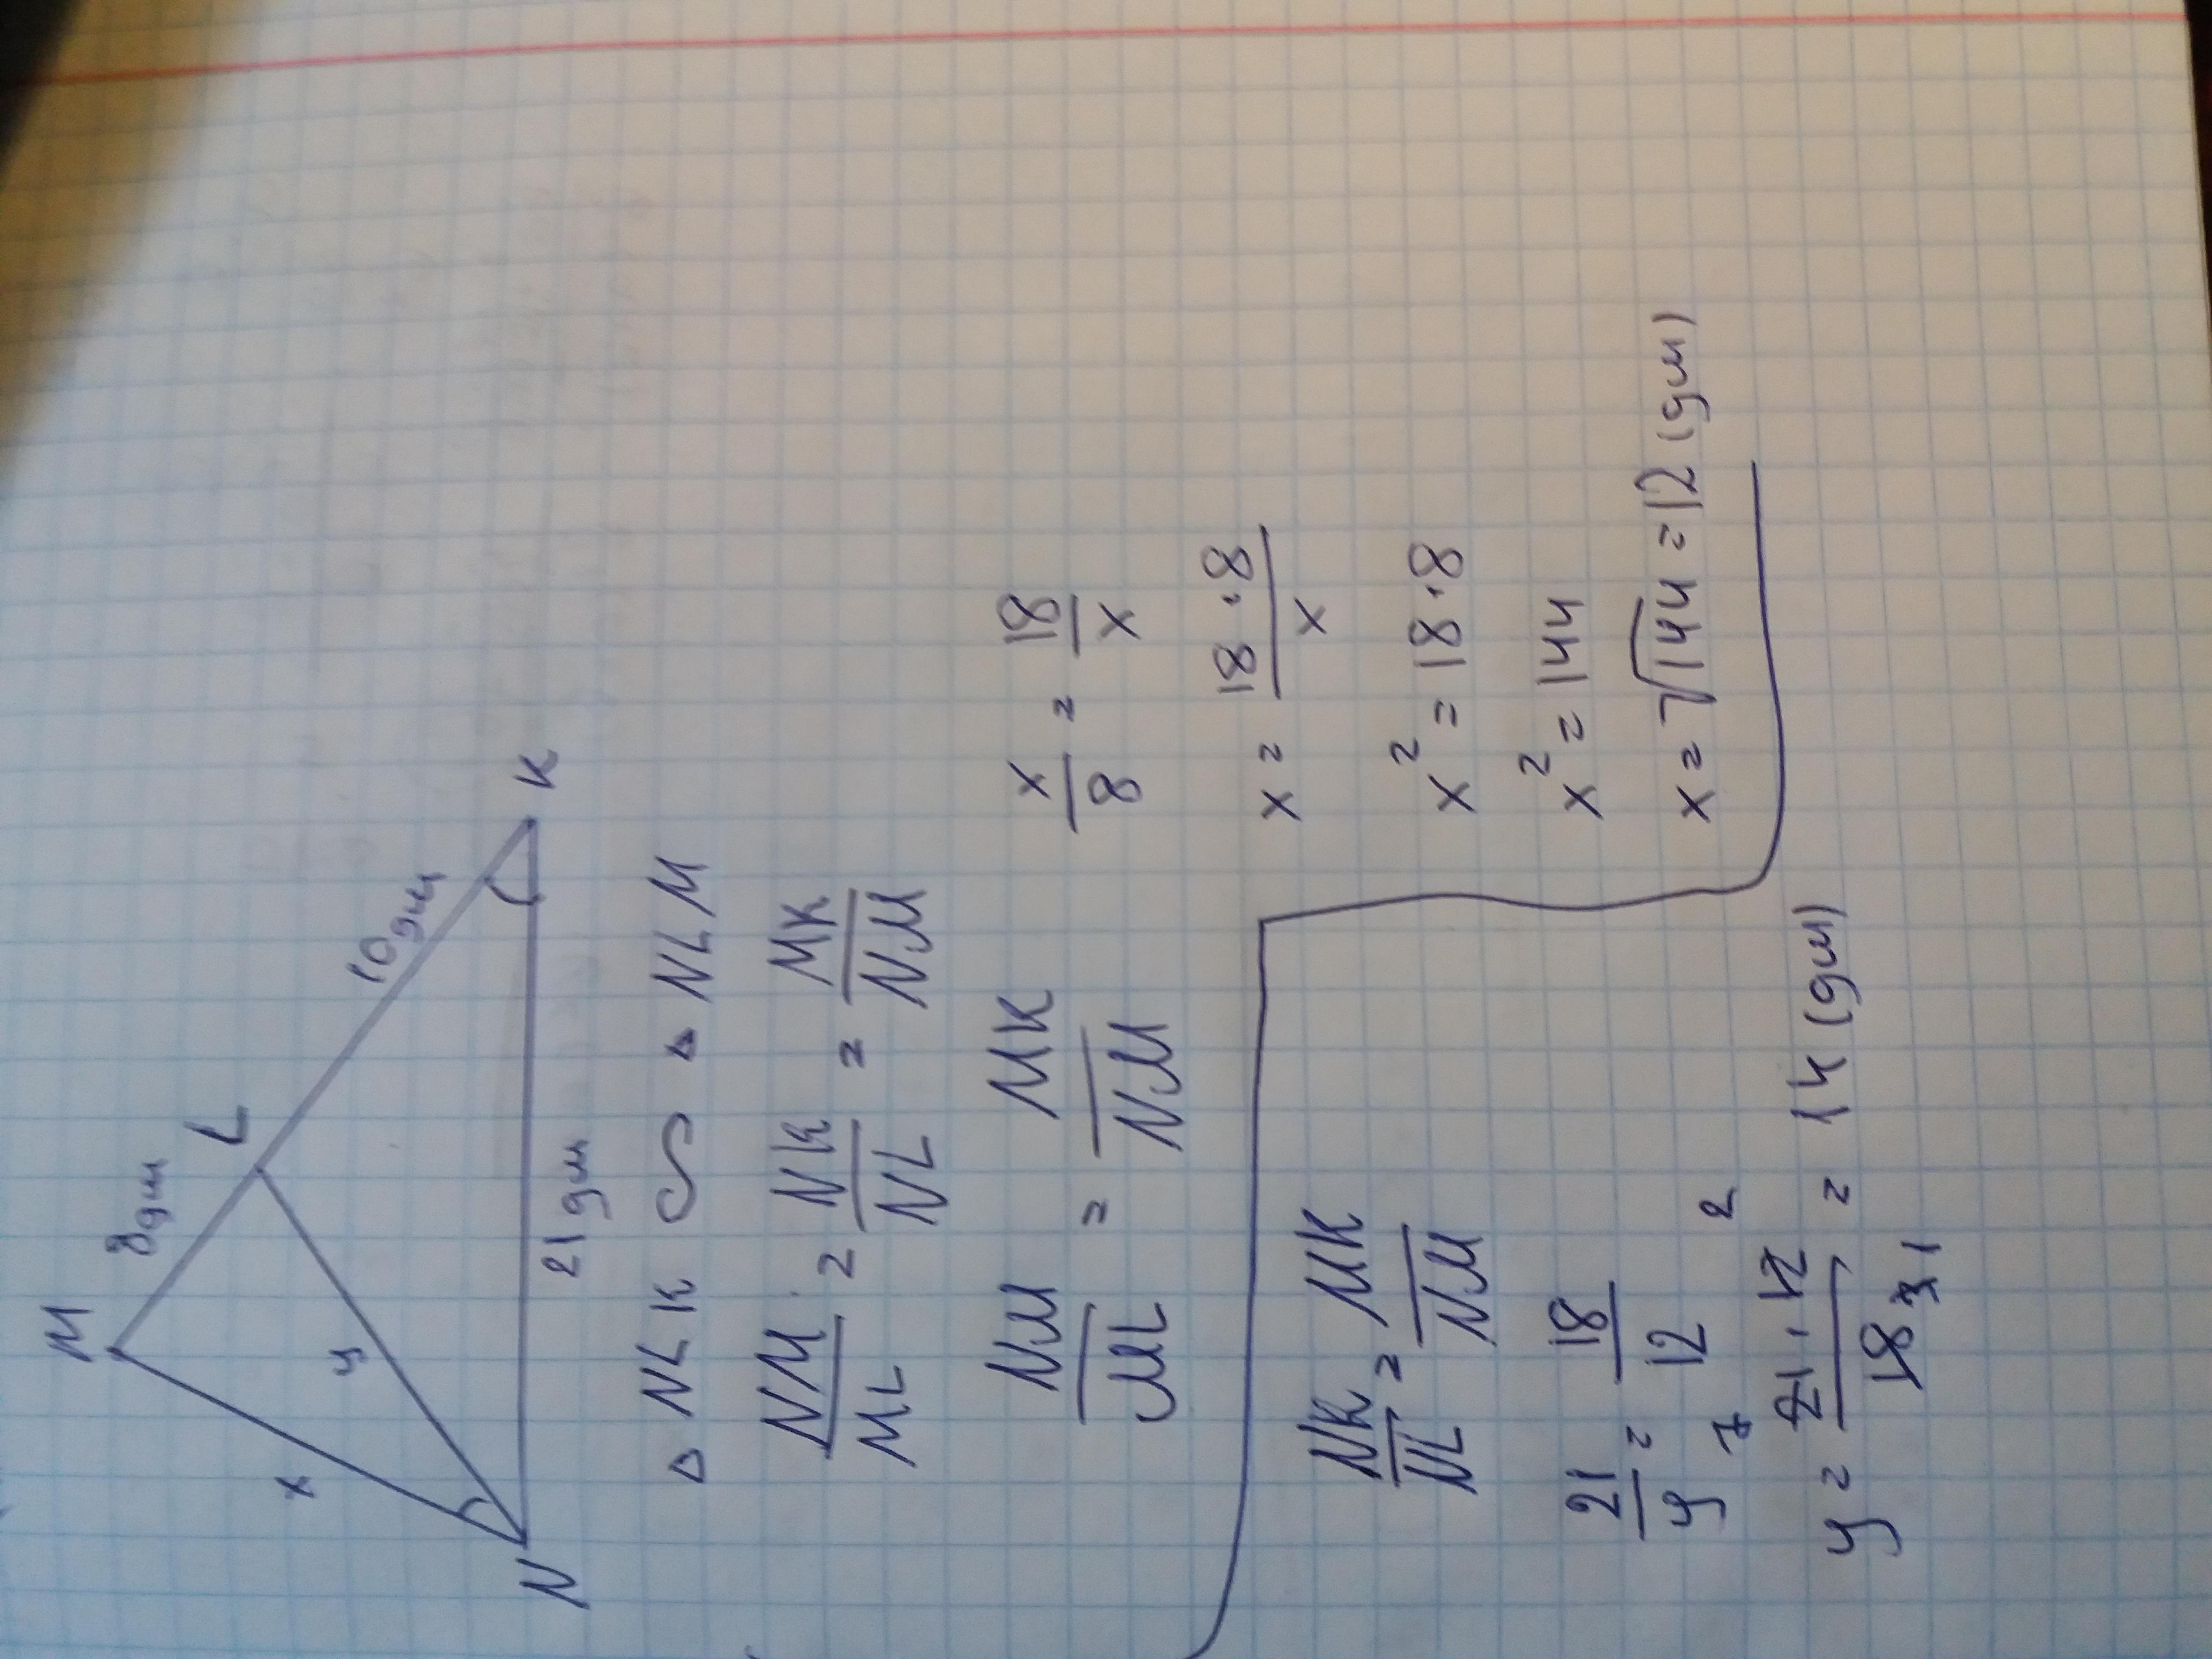 M 8 дм L 10 дм K
x y
N 21 дм
△ NLK ∽ △ NLM
NM/ML = NK/NL = MK/NM
NM/ML = MK/NM x/8 = 18/x
x = 18·8/x
x² = 18·8
x² = 144
x = √144 = 12 (дм)
NK/NL = MK/NM
21/y = 18/12
7 2
y = 21·12/18 = 14 (дм)
3 1